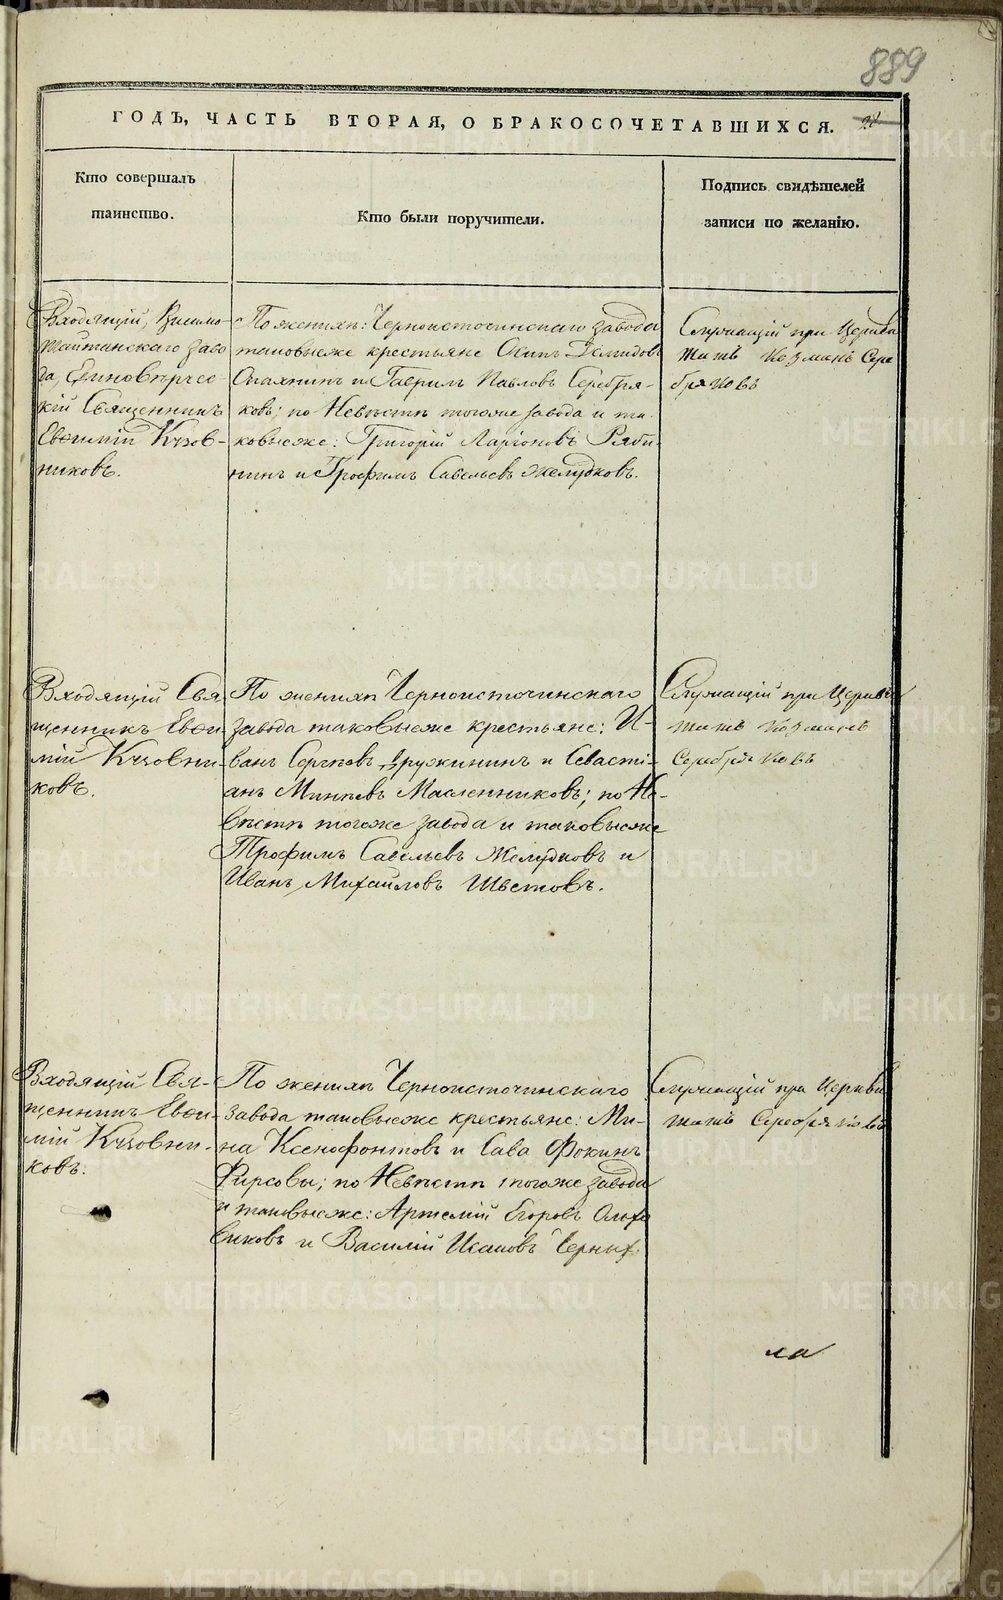 889
ГОДЪ, ЧАСТЬ ВТОРАЯ, О БРАКОСОЧЕТАВШИХСЯ.
Кто совершалъ
таинство.
Кто были поручители.
Подпись свидѣтелей
записи по желанію.
Входящій, Висимо-
Шайтанскаго заво
да, Единовѣрчес-
кій Священникъ
Евѳимій Кузов-
никовъ.
По женихѣ: Черноисточинскаго завода
таковыеже крестьяне Осипъ Демидовъ
и Гаврилъ Павловъ Серебря-
ковъ; по Невѣстѣ тогоже завода и та-
ковыеже: Григорій Ларіоновъ Ряби-
нинъ и Трофимъ Савельевъ Желудковъ.
Служащій при Церкви
Козмынъ Сере
бряковъ
Входящій Свя-
щенникъ Евѳи-
мій Кузовни-
ковъ.
По женихѣ Черноисточинскаго
завода таковыеже крестьяне: И-
ванъ Сергѣевъ Дружининъ и Севасті-
анъ Минѣевъ Масленниковъ; по Не-
вѣстѣ тогоже завода и таковыеже
Трофимъ Савельевъ Желудковъ и
Иванъ Михайловъ Шветовъ.
Служащій при Церквѣ
Козмынъ
Серебряковъ
Входящій Свя-
щенникъ Евѳи-
мій Кузовни-
ковъ.
По женихѣ Черноисточинскаго
завода таковыеже крестьяне: Ми-
на Ксенофонтовъ и Сава Фокинъ
Фирсовы; по Невѣстѣ тогоже завода
и таковыеже: Артемій Егоровъ Ольхо
виковъ и Василій Исаковъ Черных.
Служащій при Церкви
Серебряковъ
ла
METRIKI.GASO-URAL.RU